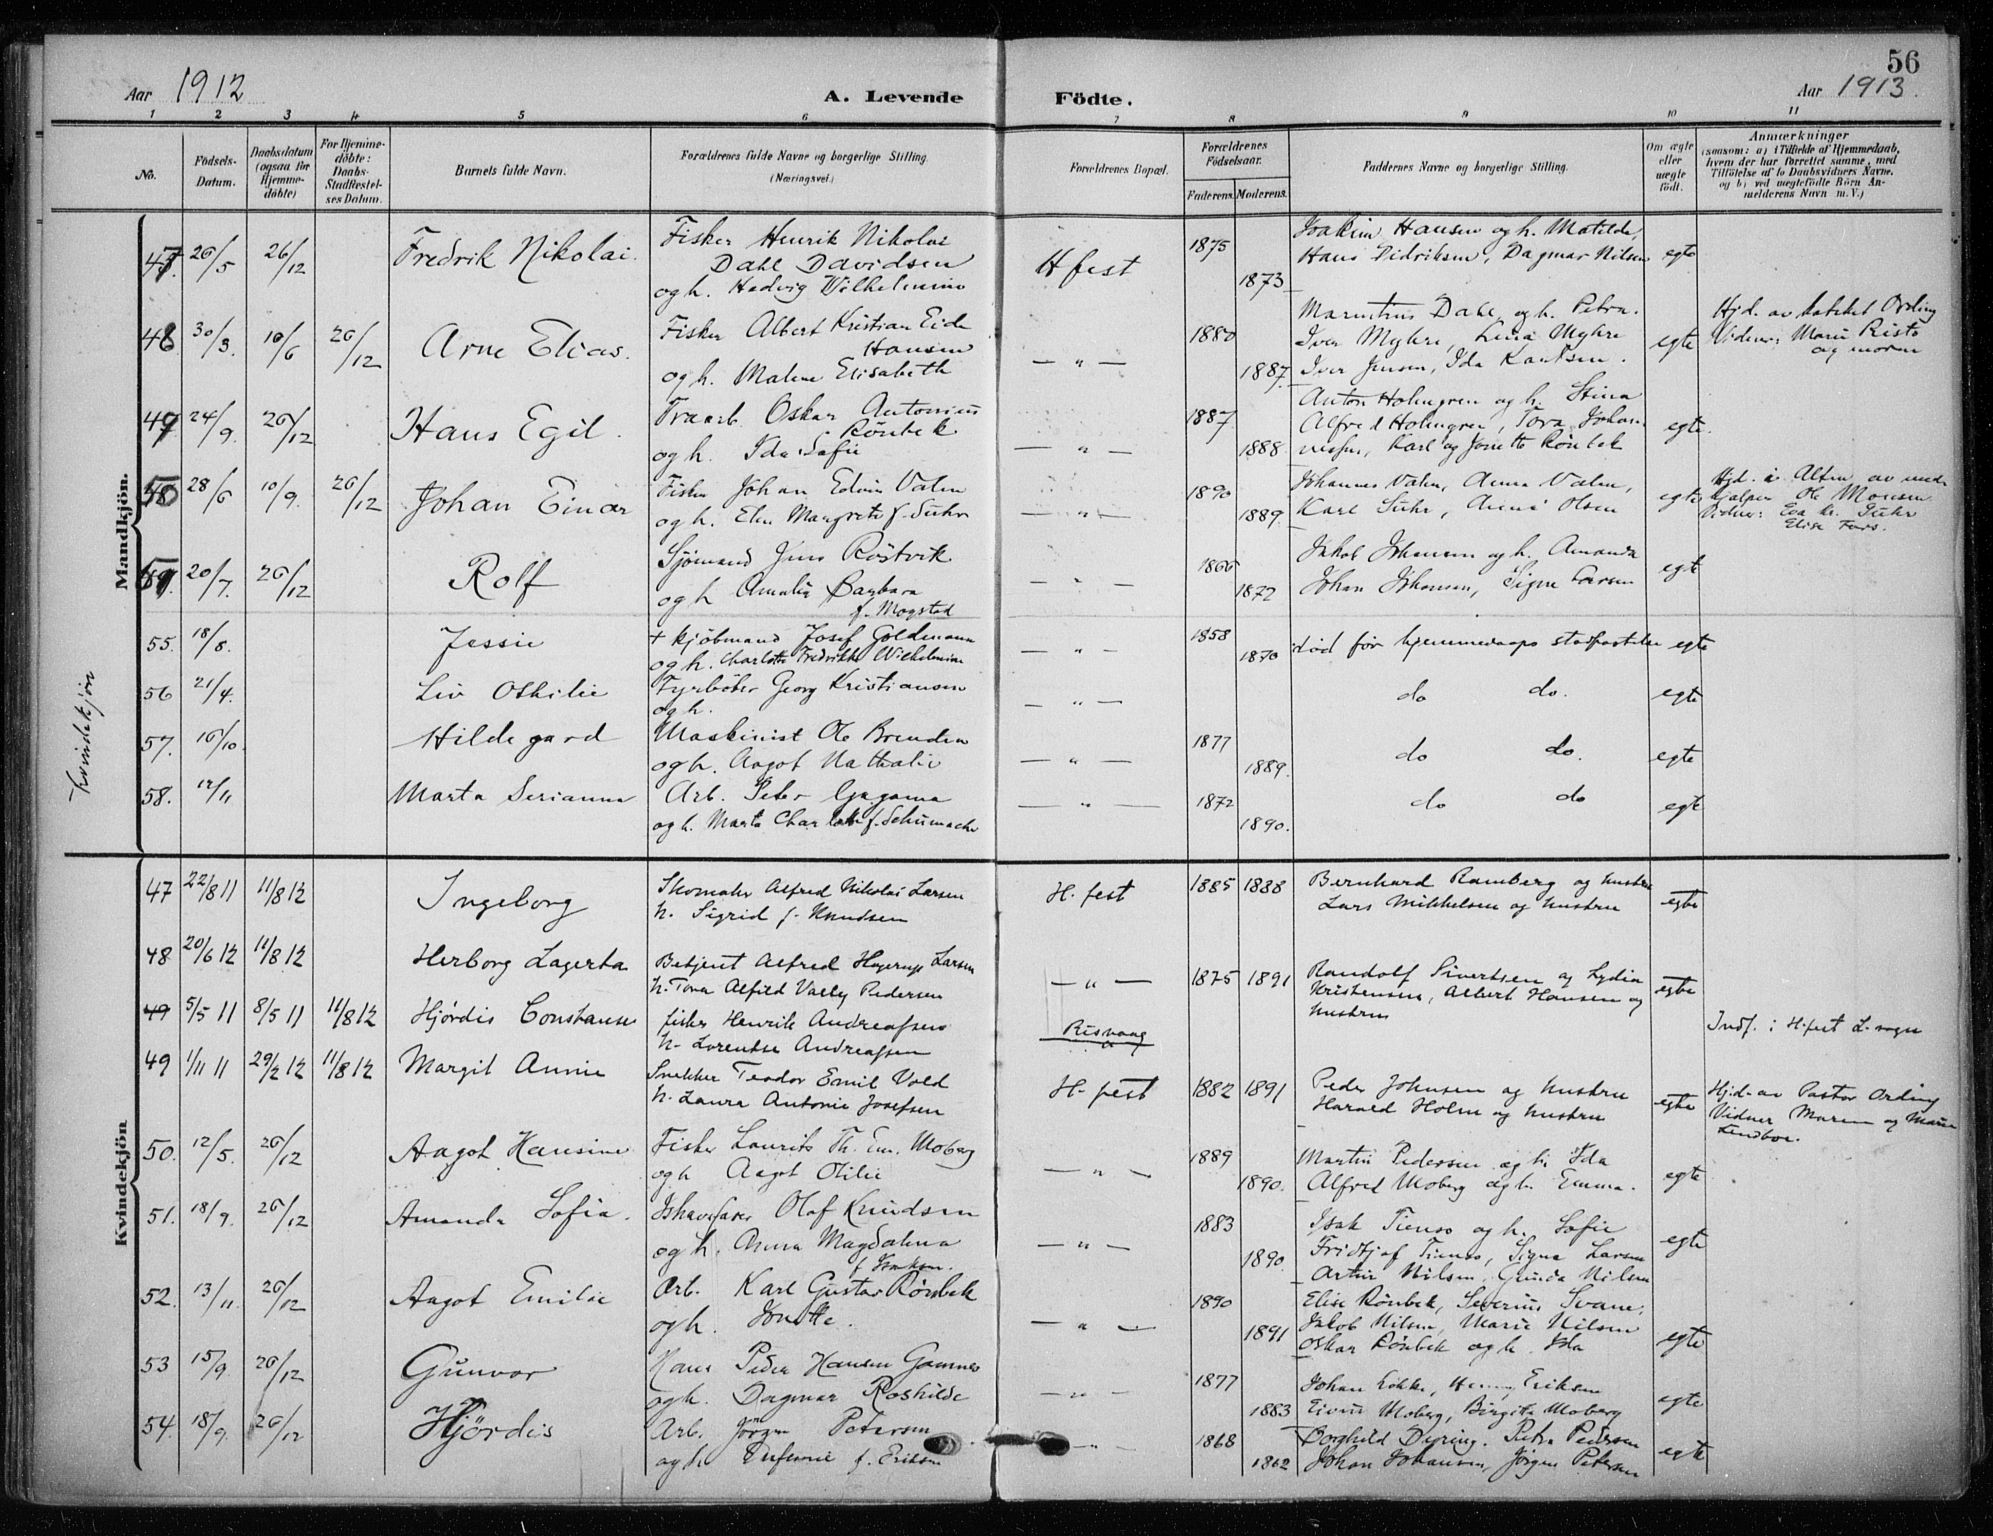 56
Aar 1912
A. Levende
Födte.
Aar 1913.
1 2 3 4 5 6 7 8 9 10 11
No.
Födsels-
Datum.
Daabsdatum
(ogsaa for
Hjemme-
döbte)
For Hjemme-
döbte:
Daabs-
Stadfæstel-
ses Datum.
Barnets fulde Navn.
Forældrenes fulde Navne og borgerlige Stilling
(Næringsvei.)
Forældrenes Bopæl.
Forældrenes
Födselsaar.
Faderens. Moderens.
Faddernes Navne og borgerlige Stilling.
Om ægte
eller
uægte
födt.
Anmærkninger
(saasom: a) i Tilfælde af Hjemmedaab,
hvem der har forrettet samme, med
Tilföielse af to Daabsvidners Navne,
og b) ved uægtefödte Börn An-
melderens Navn m. V.)
Mandkjön.
47. 26/5 26/12 Fredrik Nikolai. Fisker Henrik Nikolai
Dahl Davidsen
og h. Hedvig Vilhelmine
H fest 1875 1873
Joakim Hansen og h. Matilde,
Hans Didriksen, Dagmar Nilsen egte
48 30/3 10/6 26/12 Arne Elias. Fisker Albert Kristian Eide
Hansen
og h. Malene Elisabeth
— " — 1880 1887
Dahl og h. Petra.
Iver Myhre, Lina Myhre
Iver Jensen, Ida Karlsen. egte
Hjd. av Ording
Vidner: Marie Risto
og moren
49 24/9. 26/12 Hans Egil. Oskar Antonius
Rönbek
og h. Ida Sofie
— " — 1887 1888
Anton Holmgren og h. Stina
Alfred Holmgren, Tora Johan
Karl og Jonette Rönbek egte.
50 28/6 10/9. 26/12 Johan Einar Fisker Johan Edvin Valen
og h. Elen Margrete f. Suhr
— " — 1890 1889.
Johannes Valen, Anna Valen,
Karl Suhr, Anna Olsen egte
Hjd. i Alten av
Ole Monsen
Vidner: Eva Kr. Suhr
Elise
51. 20/7. 26/12 Rolf Sjömand Jens Röstvik
og h Amalie Barbara
f. Mogstad
— " — 1866 1872
Jakob Johansen og h. Amanda
Johan Johansen, Signe Larsen egte
Kvindekjön
55. 18/8. Jessie + kjöbmand Josef Goldmann
og h. Charlotte Fredrikke Wilhelmine
— " — 1858 1870 död før hjemmedaaps stadfæstelse egte
56 21/4. Liv Othilie Fyrböter Georg Kristiansen
og h.
— " — do do. egte
57. 16/10. Hildegard Maskinist Ole Brenden
og h. Aagot Nathalie
— " — 1877 1889. do do. egte
58. 12/11 Marta Serianna Arb. Peter
og h. Marta f. Schumache
— " — 1872 1890. do do egte
Kvindekjön
47 22/8 11 11/8 12 Ingeborg Skomaker Alfred Nikolai Larsen
h. Sigrid f. Knudsen
H. fest 1885 1888 Bernhard Ramberg og hustru
Lars Mikkelsen og hustru egte
48 20/6 12 11/8 12 Herborg Lagerta Betjent Alfred Hagerup Larsen
h. Tora Alfild Vally Pedersen
— " — 1875 1891 Randolf Sivertsen og Lydia
Kristensen, Albert Hansen og
hustru egte
49 5/5 11 8/5 11 11/8 12 Hjördis Constanse fisker Henrik Andreassen
h. Lorentse Andreassen
Risvaag
Indf. i H-fest L-sogn
49 1/11 11 29/2 12 11/8 12 Margit Annie Snekker Teodor Emil Vold
h. Laura Antonie Josefsen
H. fest 1882 1891 Peder Johnsen og hustru
Harald Holm og hustru egte
Hjd. av Pastor Ording
Vidner Maren og Marie
50. 12/5. 26/12 Aagot Hansine Fisker Laurits Th. Em. Moberg
og h Aagot Otilie
— " — 1889 1890. Martin Pedersen og h. Ida
Alfred Moberg og h. Emma. egte
51. 18/9. 26/12 Amanda Sofia. Ishavsfarer Olaf Knudsen
og h. Anna Magdalena
f.
— " — 1883 1890. Isak og h. Sofie
Fridtjof Signe Larsen
Artur Nilsen, Gunda Nilsen egte
52. 13/11. 26/12 Aagot Emilie Arb. Karl Gustav Rönbek
og h. Jonette.
— " — 1890 1891 Elise Rönbek, Severin Svane,
Jakob Nilsen, Marie Nilsen
Oskar Rönbek og h. Ida egte
53 15/9. 26/12 Gunvor Hans Peder Hansen
og h. Dagmar Roshilde
— " — 1877 1883 Johan Lökke, Eriksen
Moberg, Birgitte Moberg egte
54. 18/9. 26/12 Hjördis Arb. Jörgen Petersen
og h. f. Eriksen
— " — 1868 1862 Borghild Petra Pedersen
Johan Johansen, Jörgen Petersen egte